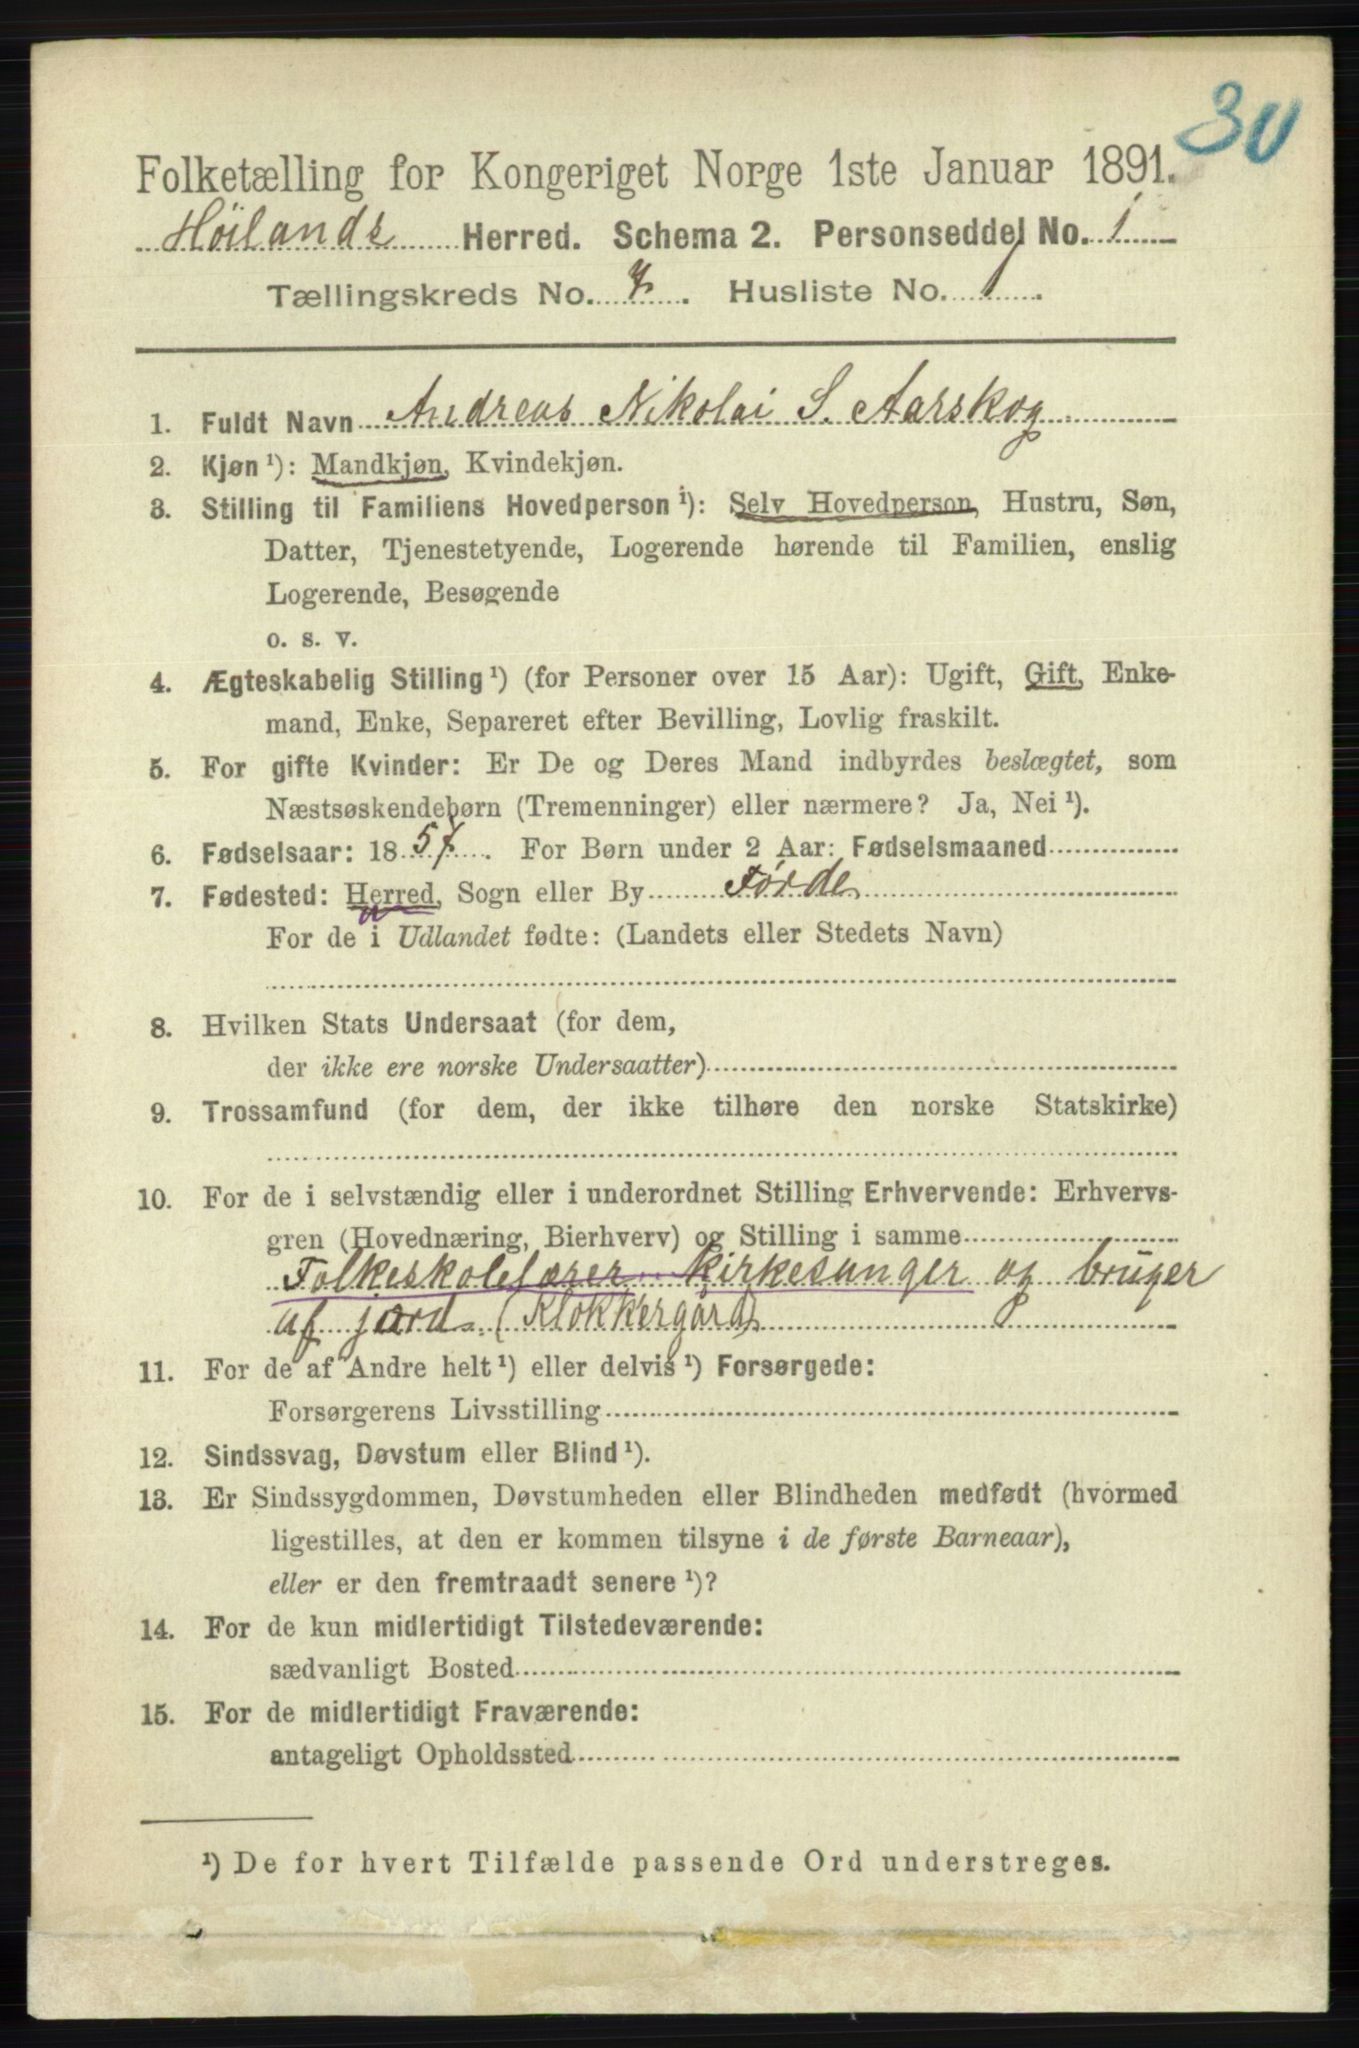 30
Folketælling for Kongeriget Norge 1ste Januar 1891.
Höilands Herred. Schema 2. Personseddel No. 1
Tællingskreds No. 7. Husliste No. 1.
1. Fuldt Navn Andreas Nikolai S. Aarskog
2. Kjøn ¹): Mandkjøn, Kvindekjøn.
3. Stilling til Familiens Hovedperson ¹): Selv Hovedperson, Hustru, Søn,
Datter, Tjenestetyende, Logerende hørende til Familien, enslig
Logerende, Besøgende
o. s. v.
4. Ægteskabelig Stilling ¹) (for Personer over 15 Aar): Ugift, Gift, Enke-
mand, Enke, Separeret efter Bevilling, Lovlig fraskilt.
5. For gifte Kvinder: Er De og Deres Mand indbyrdes beslægtet, som
Næstsøskendebørn (Tremenninger) eller nærmere? Ja, Nei ¹).
6. Fødselsaar: 1857. For Børn under 2 Aar: Fødselsmaaned
7. Fødested: Herred, Sogn eller By Förde
For de i Udlandet fødte: (Landets eller Stedets Navn)
8. Hvilken Stats Undersaat (for dem,
der ikke ere norske Undersaatter)
9. Trossamfund (for dem, der ikke tilhøre den norske Statskirke)
10. For de i selvstændig eller i underordnet Stilling Erhvervende: Erhvervs-
gren (Hovednæring, Bierhverv) og Stilling i samme
Folkeskolelærer kirkesanger og bruger
af jord (Klokkergård)
11. For de af Andre helt ¹) eller delvis ¹) Forsørgede:
Forsørgerens Livsstilling
12. Sindssvag, Døvstum eller Blind ¹).
13. Er Sindssygdommen, Døvstumheden eller Blindheden medfødt (hvormed
ligestilles, at den er kommen tilsyne i de første Barneaar),
eller er den fremtraadt senere ¹)?
14. For de kun midlertidigt Tilstedeværende:
sædvanligt Bosted
15. For de midlertidigt Fraværende:
antageligt Opholdssted
¹) De for hvert Tilfælde passende Ord understreges.